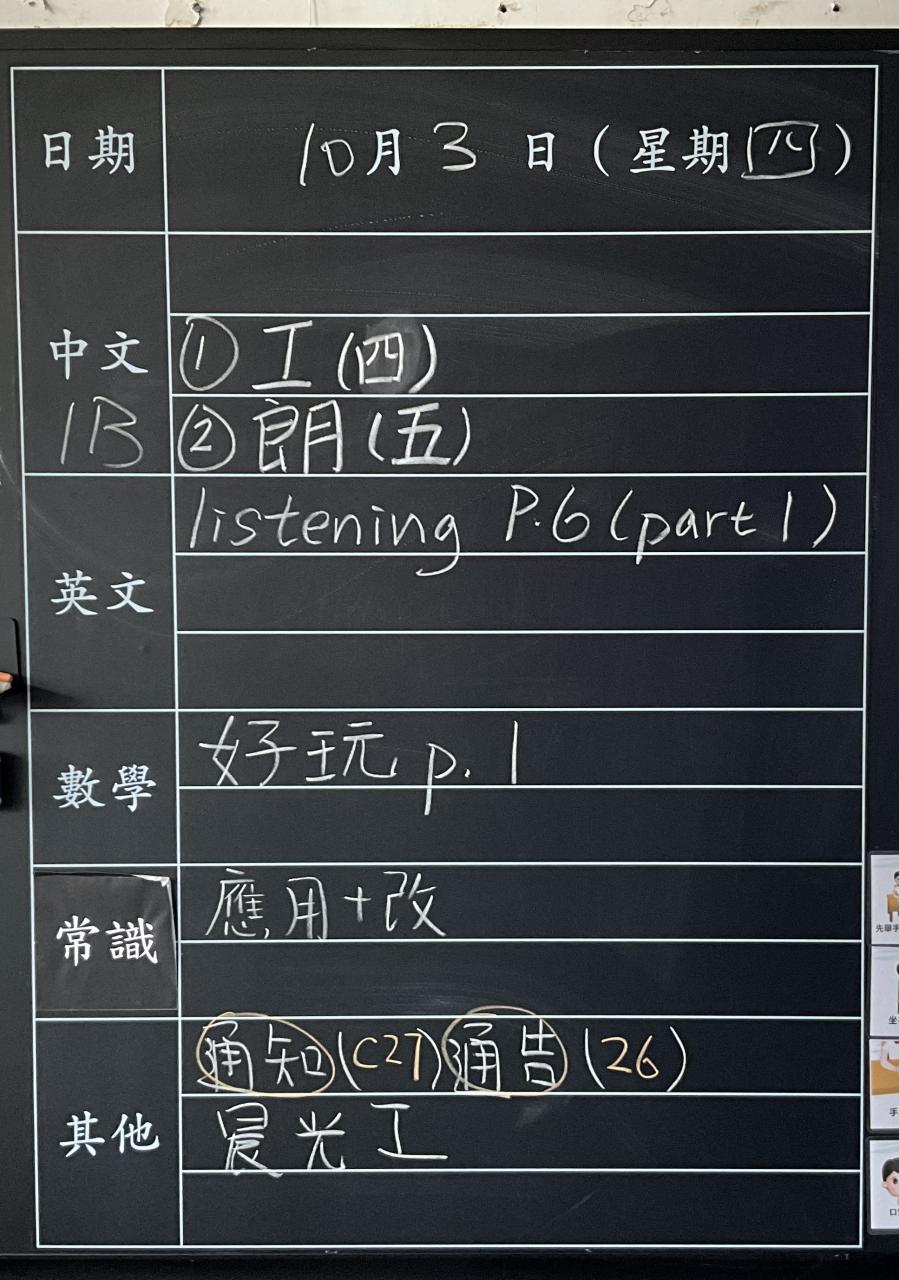 日期 10月3日(星期四)
中文 ① 工(四)
1B ② 朗(五)
listening P.6(part 1)
英文
好玩 p.1
數學
應用+改
常識
通知(C27)通告(26)
其他 晨光工
先舉手
坐
手
口